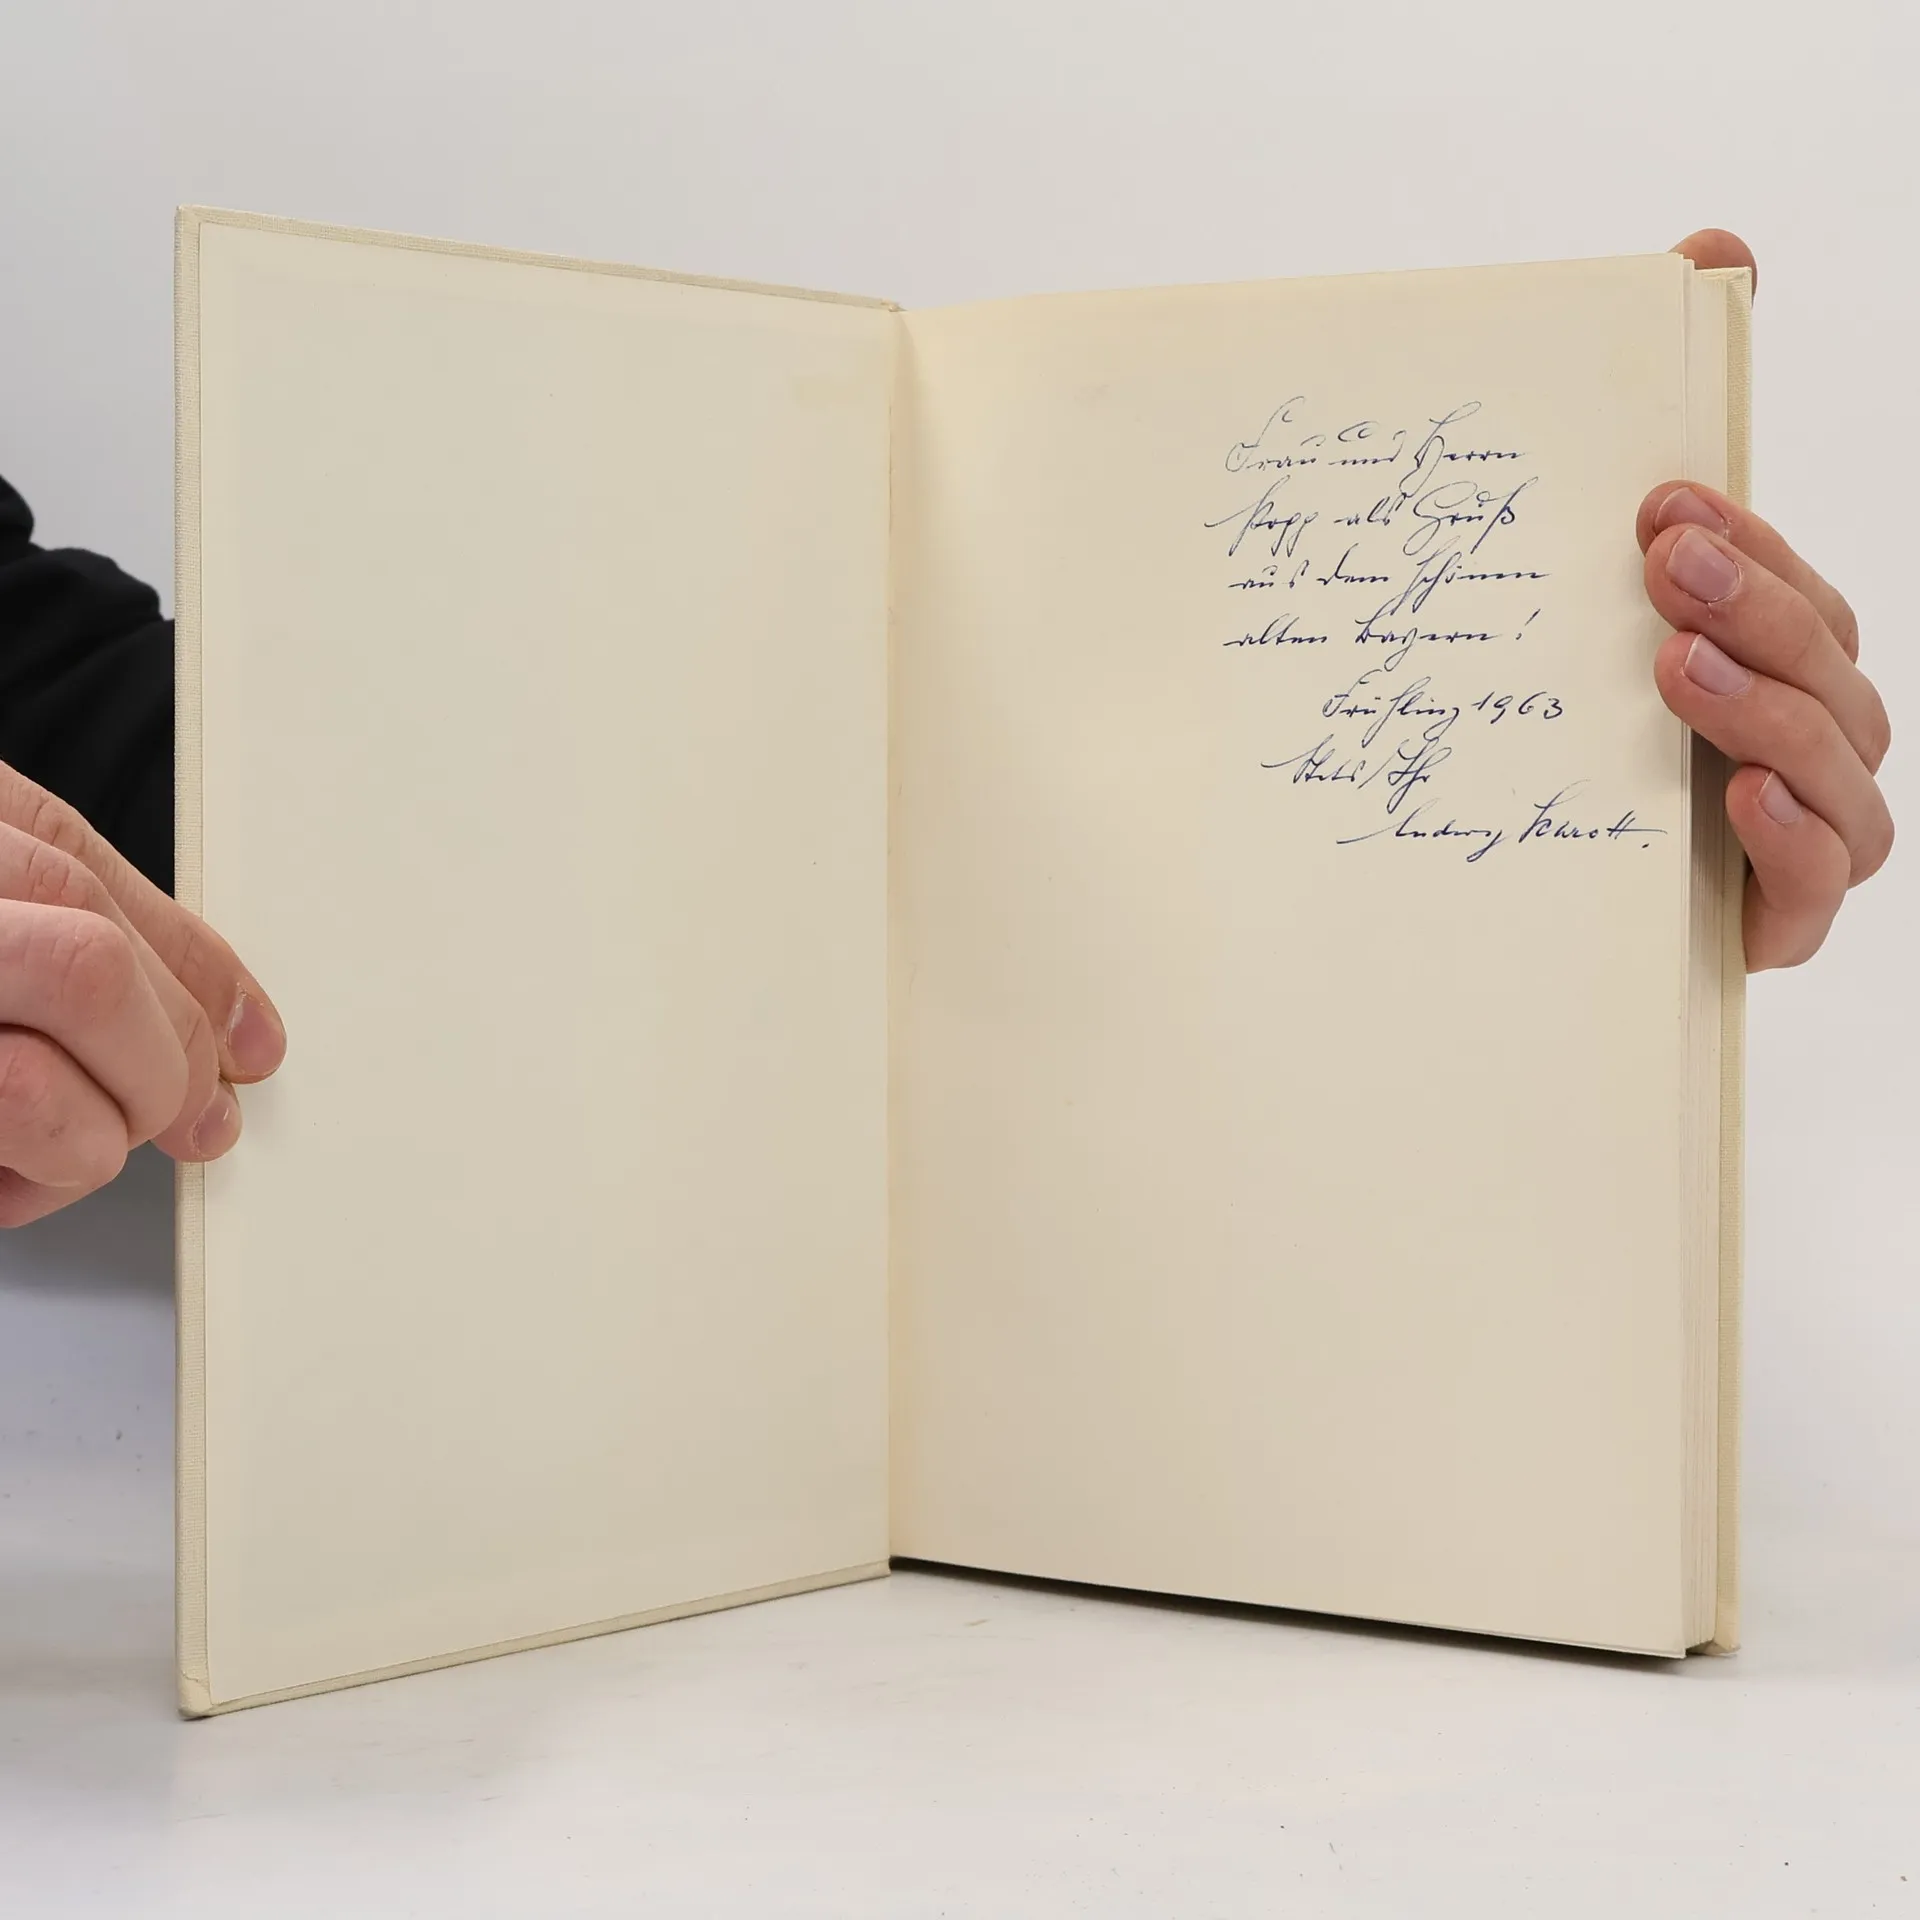 Frau und Herrn
Kopp als Gruß
aus dem schönen
alten Bayern!
Frühling 1963
Stets / Ihr
Ludwig Schrott.